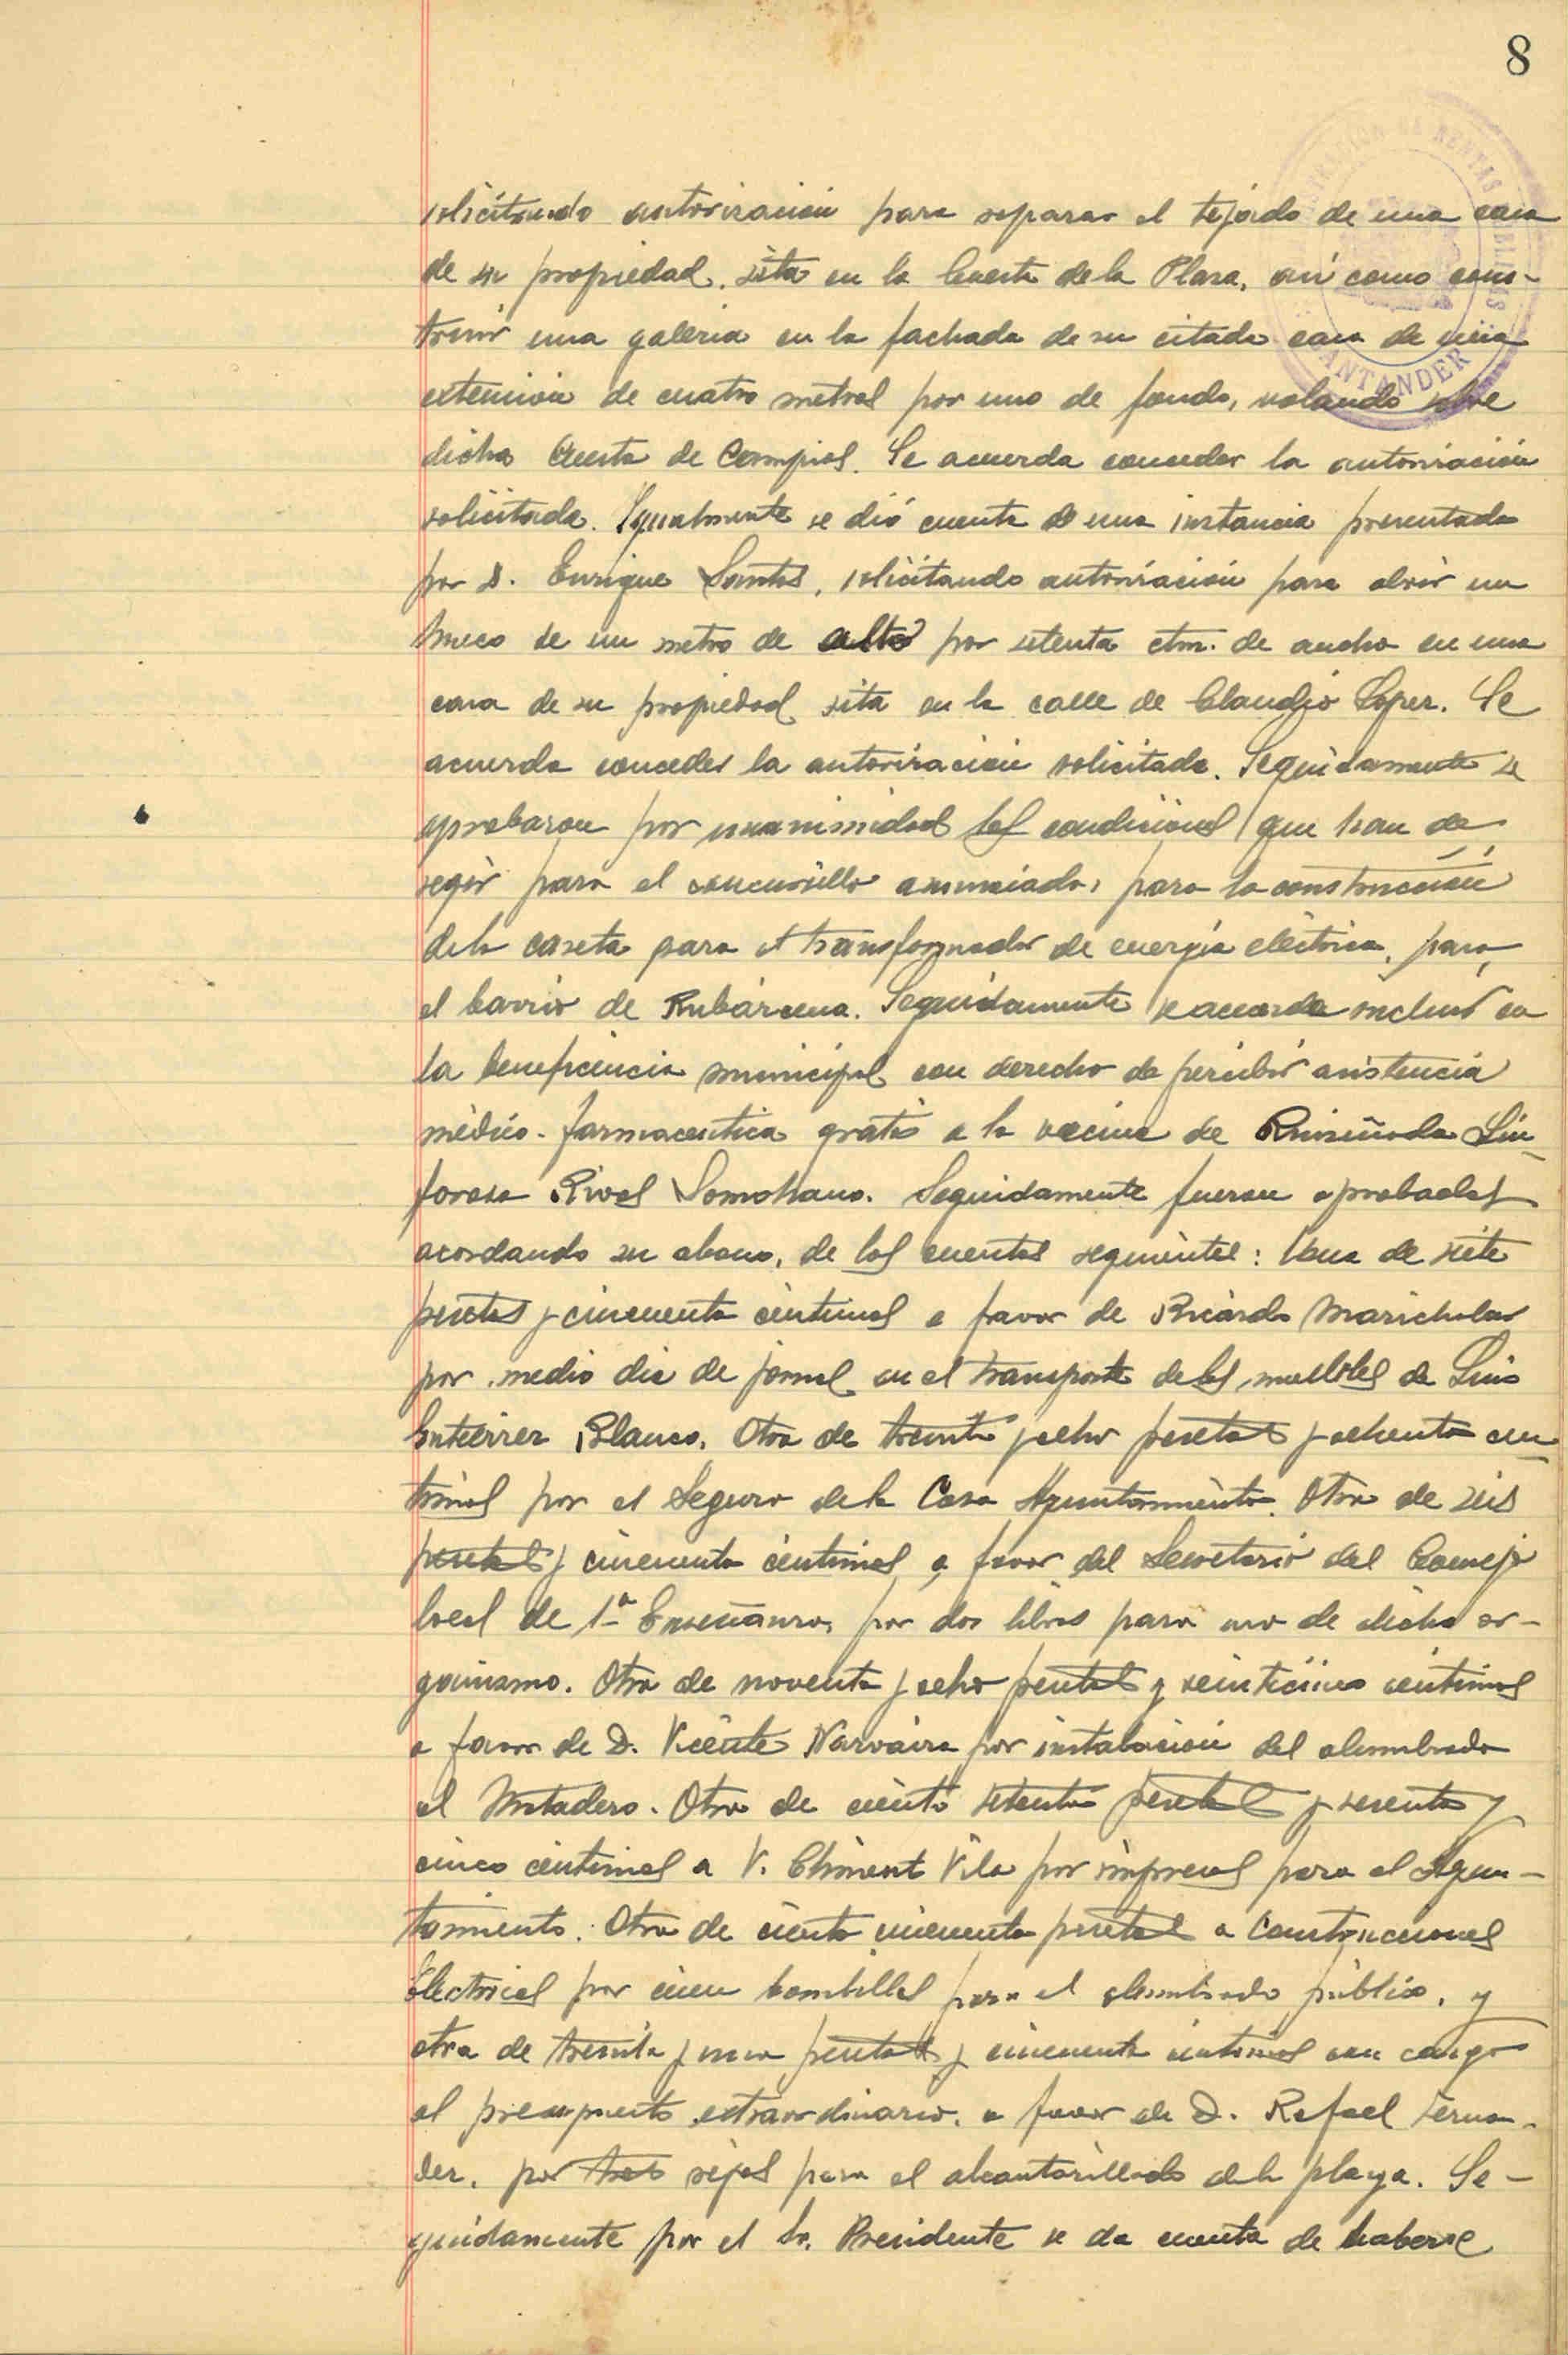 8
ADMINISTRACION DE RENTAS PUBLICAS
SANTANDER
solicitando autorización para reparar el tejado de una casa
de su propiedad, sita en la Cuesta de la Plaza, asi como cons-
truir una galeria en la fachada de su citada casa de una
extensión de cuatro metros por uno de fondo, volando sobre
dicha Cuesta de Campios. Se acuerda conceder la autorización
solicitada. Igualmente se dió cuenta de una instancia presentada
por D. Enrique Santos, solicitando autorización para abrir un
hueco de un metro de alto por setenta ctm. de ancho en una
casa de su propiedad sita en la calle de Claudio Lopez. Se
acuerda conceder la autorización solicitada. Seguidamente se
aprobaron por unanimidad las condiciones que han de
regir para el concursillo anunciado, para la construcción
de la caseta para el transformador de energia eléctrica, para
el barrio de Rubárcena. Seguidamente se acuerda incluir en
la beneficencia municipal con derecho de percibir asistencia
médico-farmaceutica gratis a la vecina de Ruiseñada Sin-
forosa Rivas Somohano. Seguidamente fueron aprobadas
acordando su abono, de las cuentas siguientes: Una de siete
pesetas y cincuenta centimos a favor de Ricardo Marichalar
por medio dia de jornal en el transporte de los muebles de Luis
Gutierrez Blanco. Otra de treinta y ocho pesetas y ochenta cen-
timos por el Seguro de la Casa Ayuntamiento. Otra de seis
pesetas y cincuenta centimos a favor del Secretario del Consejo
local de 1ª Enseñanza, por dos libros para uso de dicho or-
ganismo. Otra de noventa y ocho pesetas y veinticinco centimos
a favor de D. Vicente Narvaiza por instalación del alumbrado
al Matadero. Otra de ciento setenta pesetas y sesenta y
cinco centimos a V. Climent Vila por impresos para el Ayun-
tamiento. Otra de ciento cincuenta pesetas a Construcciones
Electricas por cien bombillas para el alumbrado público, y
otra de treinta y una pesetas y cincuenta centimos con cargo
al presupuesto extraordinario, a favor de D. Rafael Fernan-
dez, por tres rejas para el alcantarillado de la playa. Se-
guidamente por el Sr. Presidente se da cuenta de haberse